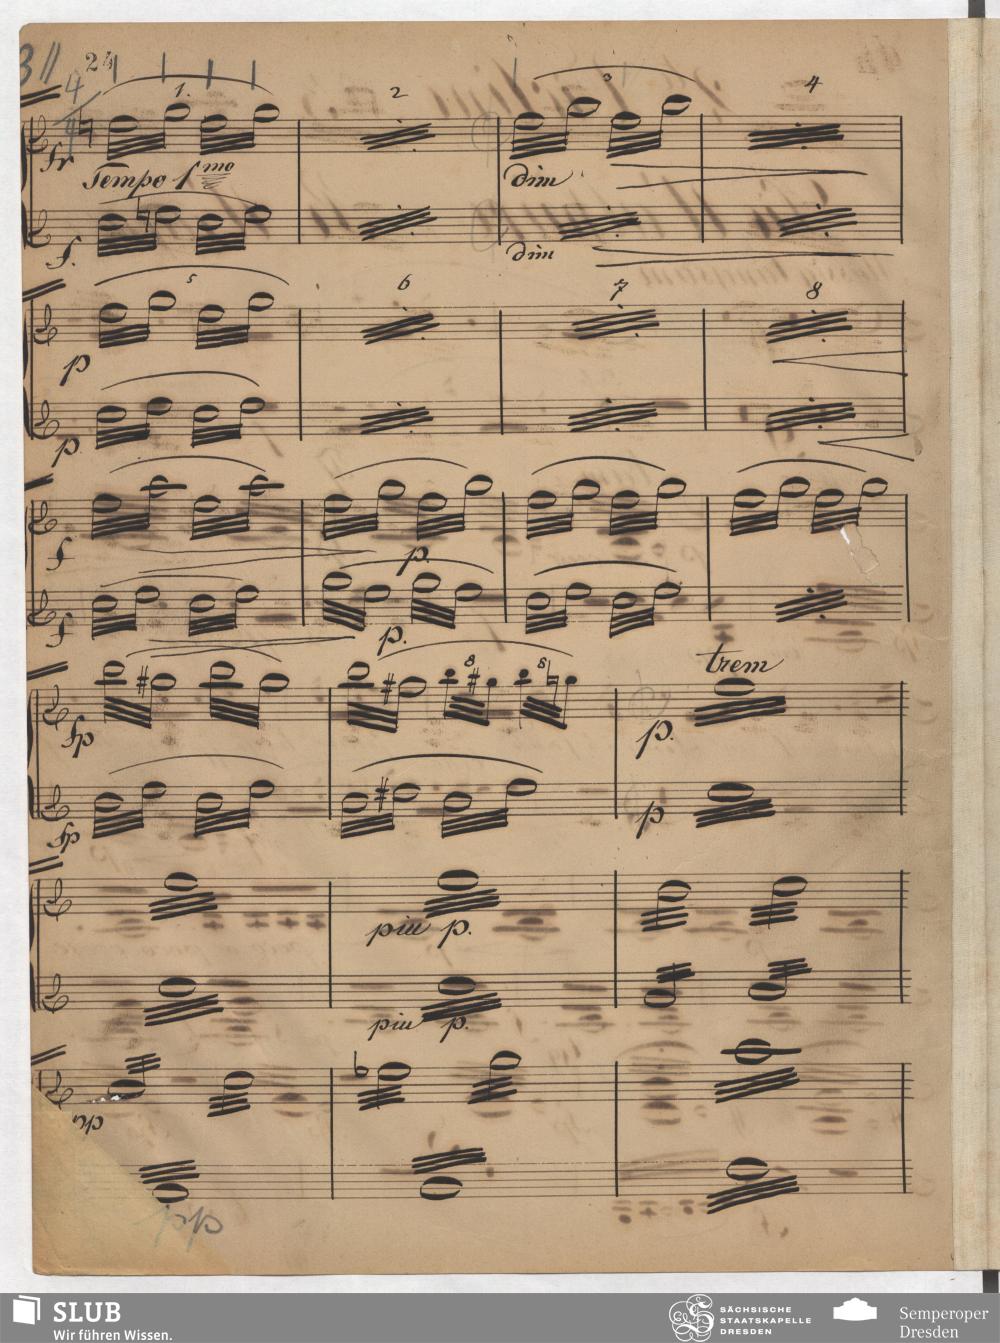 311 24
4/4
1. 2 3 4
fr
Tempo 1mo dim
f. dim
5 6 7 8
p
p.
f p.
f p.
8 8 trem
fp p.
fp p
piu p.
piu p.
pp
pp
SLUB
Wir führen Wissen.
SÄCHSISCHE
STAATSKAPELLE
DRESDEN
Semperoper
Dresden